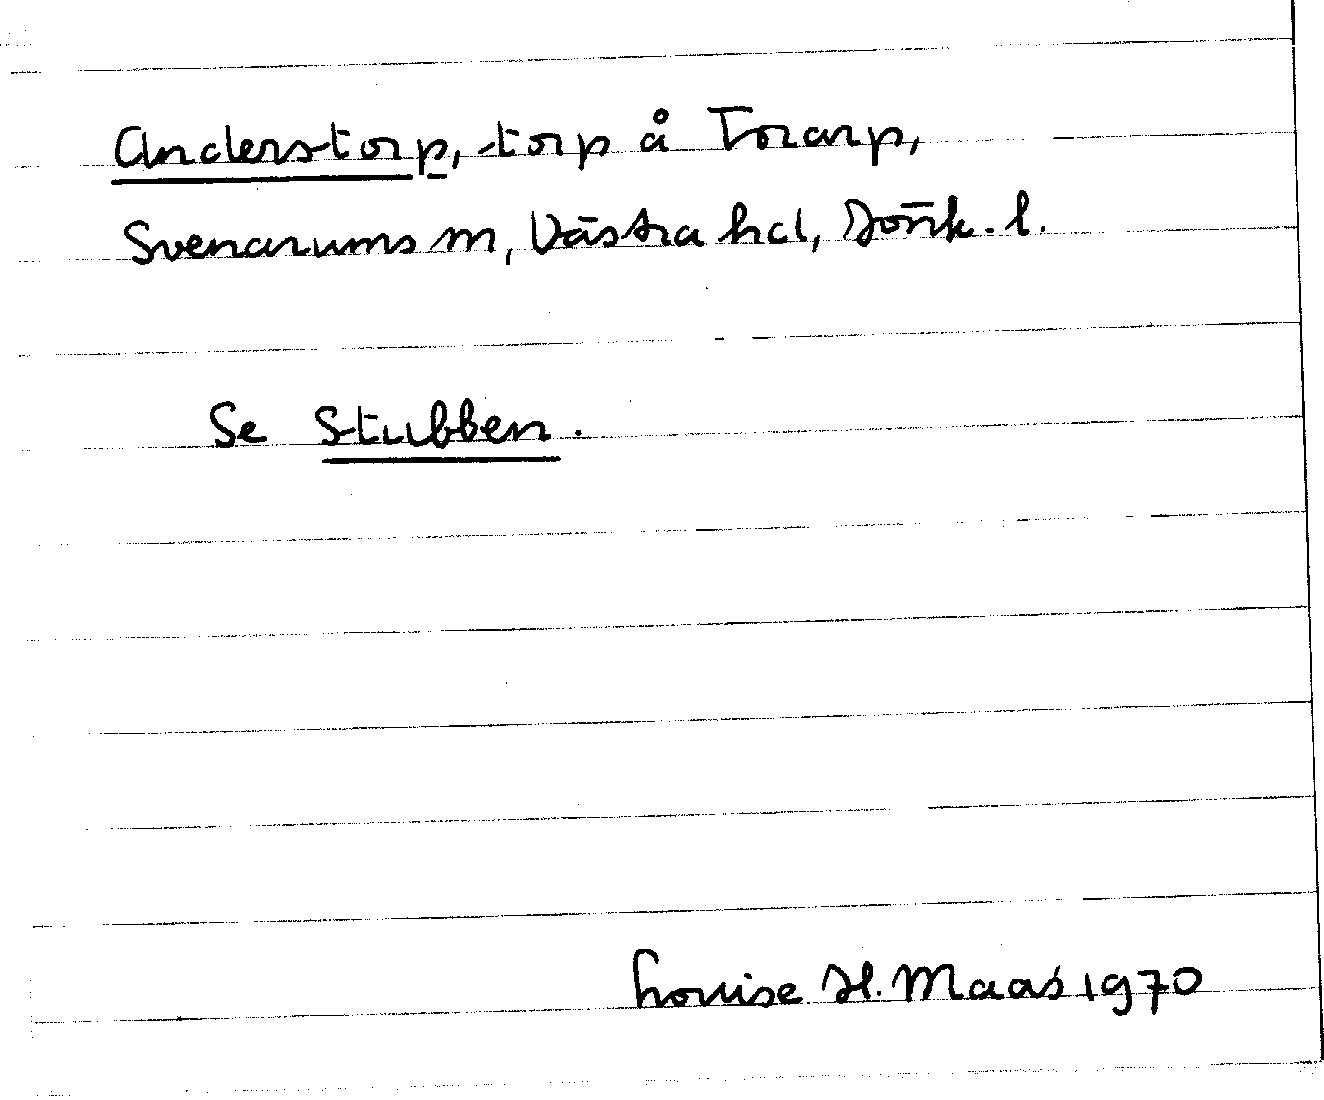 Anderstorp, torp å Torarp,
Svenarums sn, Västra hd, Jönk. l.
Se Stubben.
Louise H. Maas 1970